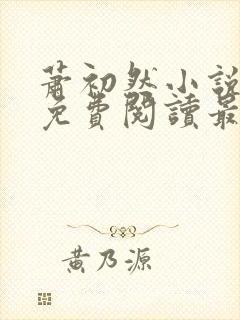 蕭初然小說
免費閱讀最
黃乃源